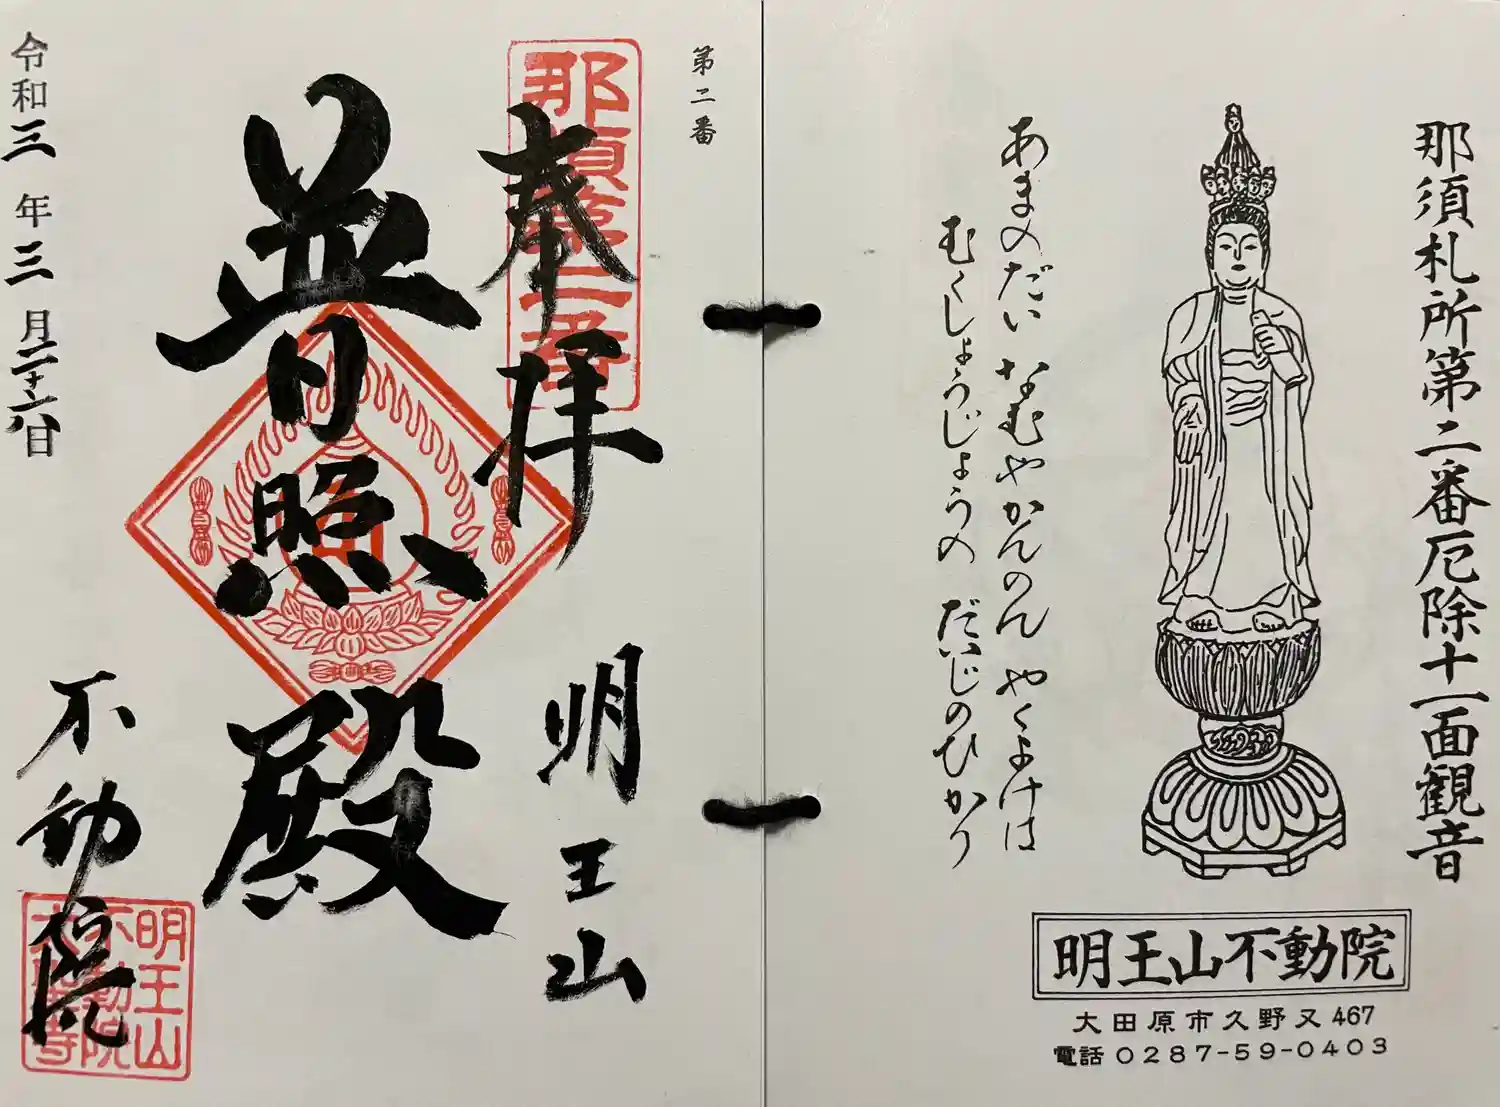 那須札所第二番厄除十一面観音
あまのだい なむやかんのん やくよけは
むくしょうじょうの だいじのひかり
明王山不動院
大田原市久野又467
電話 0287-59-0403
第二番
那須第二番
奉拝
明王山
普照殿
不動院
令和三年三月二十六日